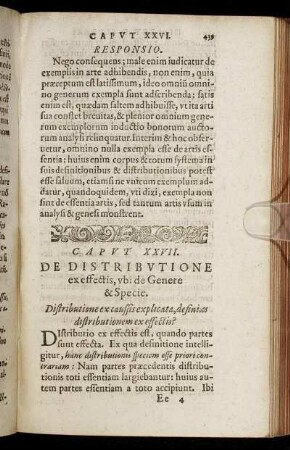 CAPVT XXVI. 439
RESPONSIO.
Nego consequens; male enim iudicatur de
exemplis in arte adhibendis, non enim, quia
præceptum est latissimum, ideo omniū omni-
no generum exempla sunt adscribenda; satis
enim est, quædam saltem adhibuisse, vt ita arti
sua constet breuitas, & plenior omnium gene-
rum exemplorum inductio bonorum aucto-
rum analysi relinquatur. Interim & hoc obser-
uetur, omnino nulla exempla esse de artis es-
sentia: huius enim corpus & totum systema in
suis definitionibus & distributionibus potest
esse saluum, etiamsi ne vnicum exemplum ad-
datur, quandoquidem, vti dixi, exempla non
sint de essentia artis, sed tantum artis vsum in
analysi & genesi monstrent.
CAPVT XXVII.
DE DISTRIBVTIONE
ex effectis, vbi de Genere
& Specie.
Distributione ex caussis explicata, definias
distributionem ex effectis?
DIstributio ex effectis est, quando partes
sunt effecta. Ex qua definitione intelli-
gitur, hanc distributionis speciem esse priori con-
trariam: Nam partes præcedentis distributi-
onis toti essentiam largiebantur: huius au-
tem partes essentiam a toto accipiunt. Ibi
Ee 4